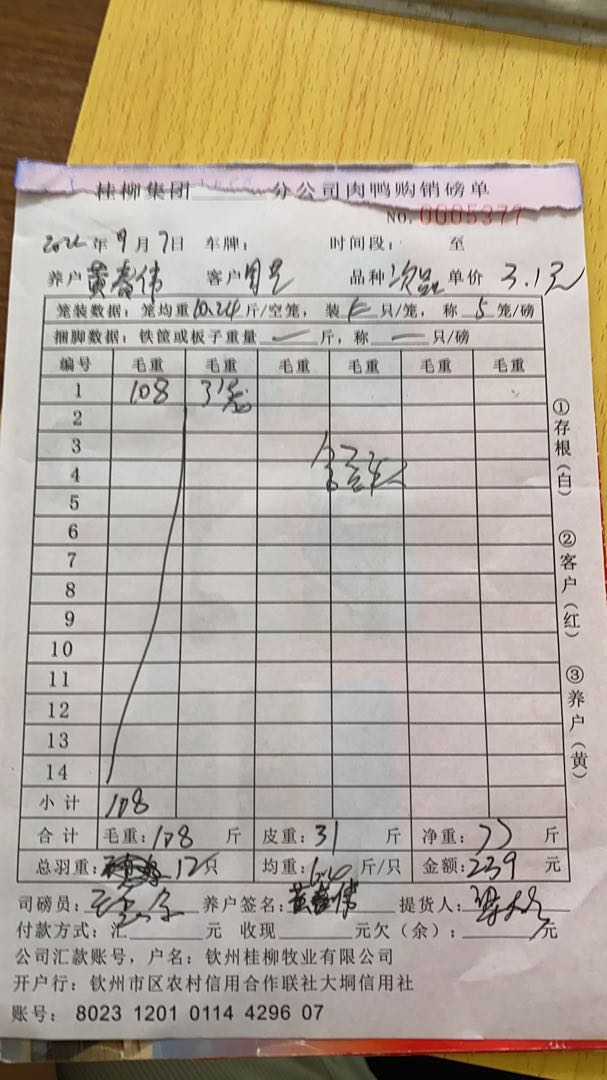 桂柳集团 分公司肉鸭购销磅单
NO. 0005377
2022年9月7日 车牌： 时间段： 至
养户 黄春伟 客户 品种 次品 单价 3.1元
笼装数据：笼均重10.24斤/空笼，装 只/笼，称 5 笼/磅
捆脚数据：铁筐或板子重量 — 斤，称 — 只/磅
编号 毛重 毛重 毛重 毛重 毛重 毛重
1 108 3笼
2
3
4
5
6
7
8
9
10
11
12
13
14
小计 108
合计 毛重：108 斤 皮重：31 斤 净重：77 斤
总羽重： 12只 均重：6.40 斤/只 金额：239 元
司磅员： 养户签名：黄春伟 提货人：
付款方式：汇 元 收现 元欠（余）： 元
公司汇款账号，户名：钦州桂柳牧业有限公司
开户行：钦州市区农村信用合作联社大垌信用社
账号：8023 1201 0114 4296 07
①存根（白） ②客户（红） ③养户（黄）